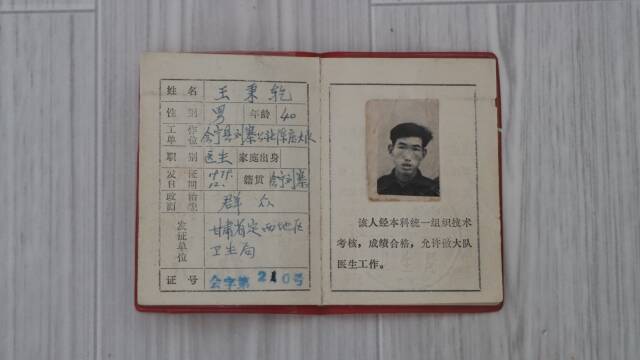 姓名 王秉乾
性别 男 年龄 40
工作单位 会宁县刘寨公社陈庄大队
职别 医生 家庭出身
发证日期 1979.12. 籍贯 会宁刘寨
政治面貌 群众
发证单位 甘肃省定西地区
卫生局
证号 会字第210号
该人经本科统一组织技术
考核，成绩合格，允许做大队
医生工作。